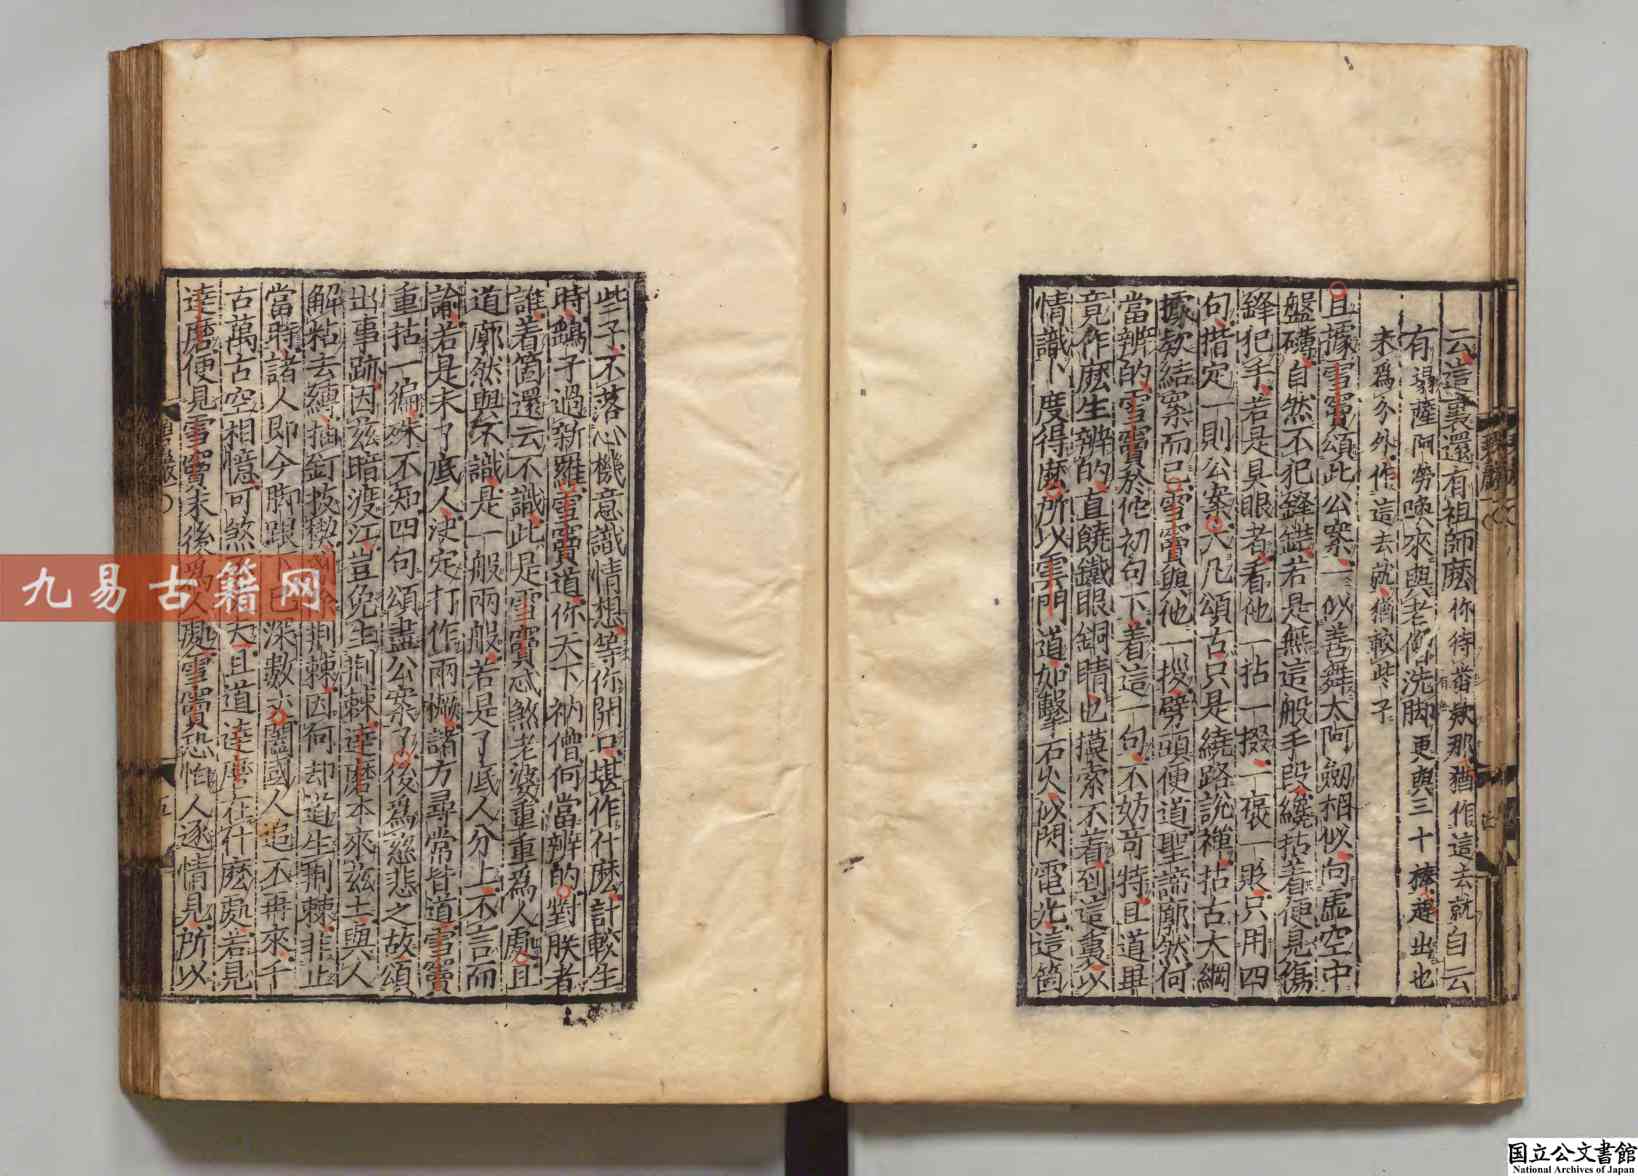 云這裏還有祖師麽你待番欵那猶作這去就自云
有弱薩阿勞喚來與老僧洗脚更與三十棒趕出也
未爲分外作這去就猶較些子
且據雪竇頌此公案一似善舞太阿劒相似向虛空中
盤礴自然不犯鋒鋩若是無這般手段纔拈着便見傷
鋒犯手若是具眼者看他一拈一掇一褒一貶只用四
句揩定一則公案大凡頌古只是繞路說禪拈古大綱
據欵結案而已雪竇與他一拶劈頭便道聖諦廓然何
當辨的雪竇於他初句下着這一句不妨奇特且道畢
竟作麽生辨的直饒鐵眼銅睛也摸索不着到這裏以
情識卜度得麽所以雲門道如擊石火似閃電光這箇
些子不落心機意識情想等你開口堪作什麽計較生
時鷂子過新羅雪竇道你天下衲僧何當辨的對朕者
誰着箇還云不識此是雪竇忒煞老婆重重爲人處且
道廓然與不識是一般兩般若是了底人分上不言而
諭若是未了底人決定打作兩橛諸方尋常皆道雪竇
重拈一徧殊不知四句頌盡公案了後爲慈悲之故頌
出事跡因茲暗渡江豈免生荆棘達磨本來茲土與人
解粘去縛抽釘拔楔剗除荆棘因何却道生荆棘非止
當時諸人即今脚跟下已深數丈闔國人追不再來千
古萬古空相憶可煞不丈夫且道達磨在什麽處若見
達磨便見雪竇末後爲人處雪竇恐怕人逐情見所以
九易古籍网
国立公文書館
National Archives of Japan